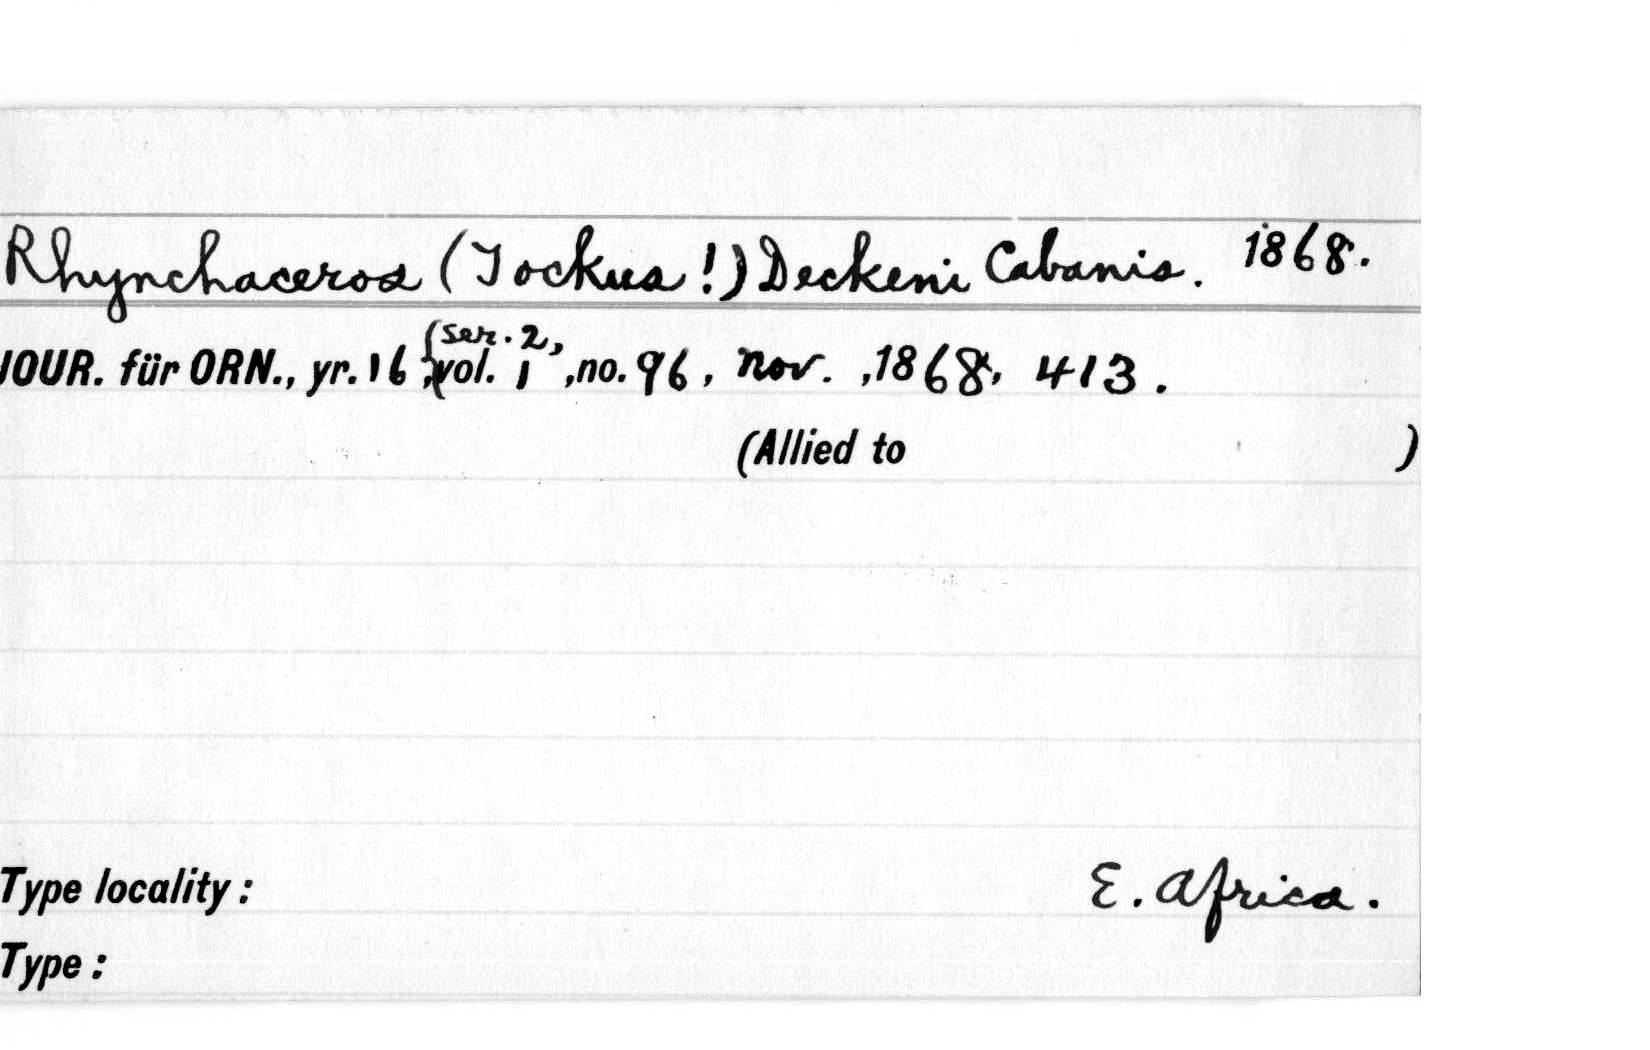 Rhynchaceros (Tockus!) Deckeni Cabanis. 1868.
JOUR. für ORN., yr. 16, (ser. 2, vol. 1, no. 96, Nov., 1868, 413.
(Allied to )
Type locality: E. Africa.
Type: